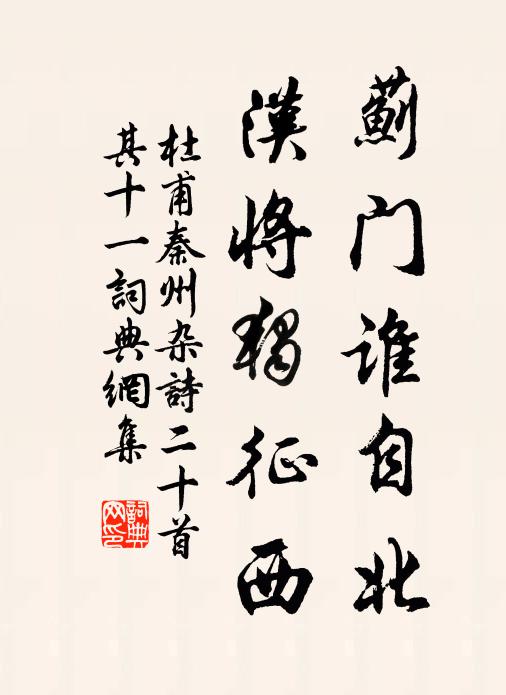 薊门谁自北
漢將獨征西
杜甫秦州杂詩二十首
其十一詞典網集
詞典
网印